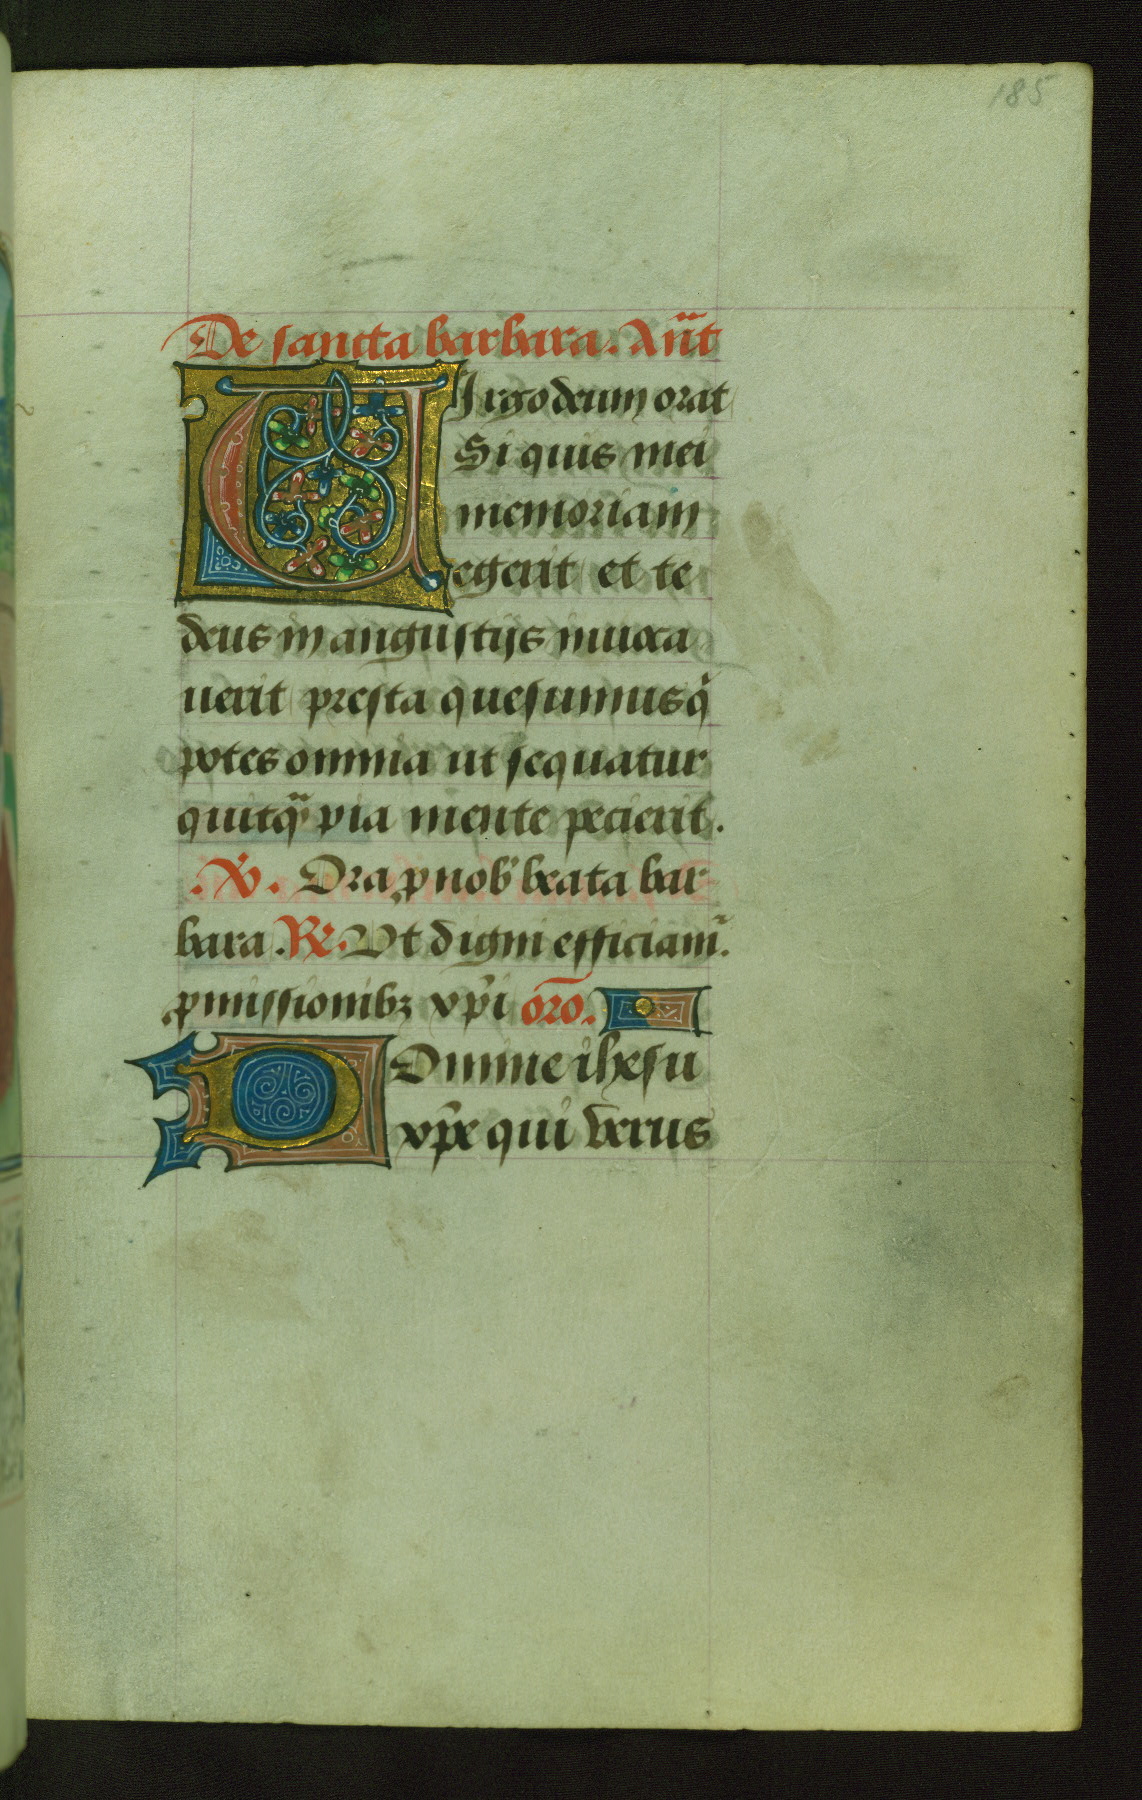 185
De sancta barbara. An̄t
VIrgo deum orat
Si quis mei
memoriam
egerit et te
deus in angustijs inuoca
uerit presta quesumus q̄
potes omnia ut sequatur
quitq̄ pia mente pecierit.
.V̸. Ora ꝓ nob̾ beata bar
bara .R̸. Vt digni efficiam̄.
ꝓmissionibꝫ xp̄i or̄o.
DOmine ihesu
xp̄e qui verus